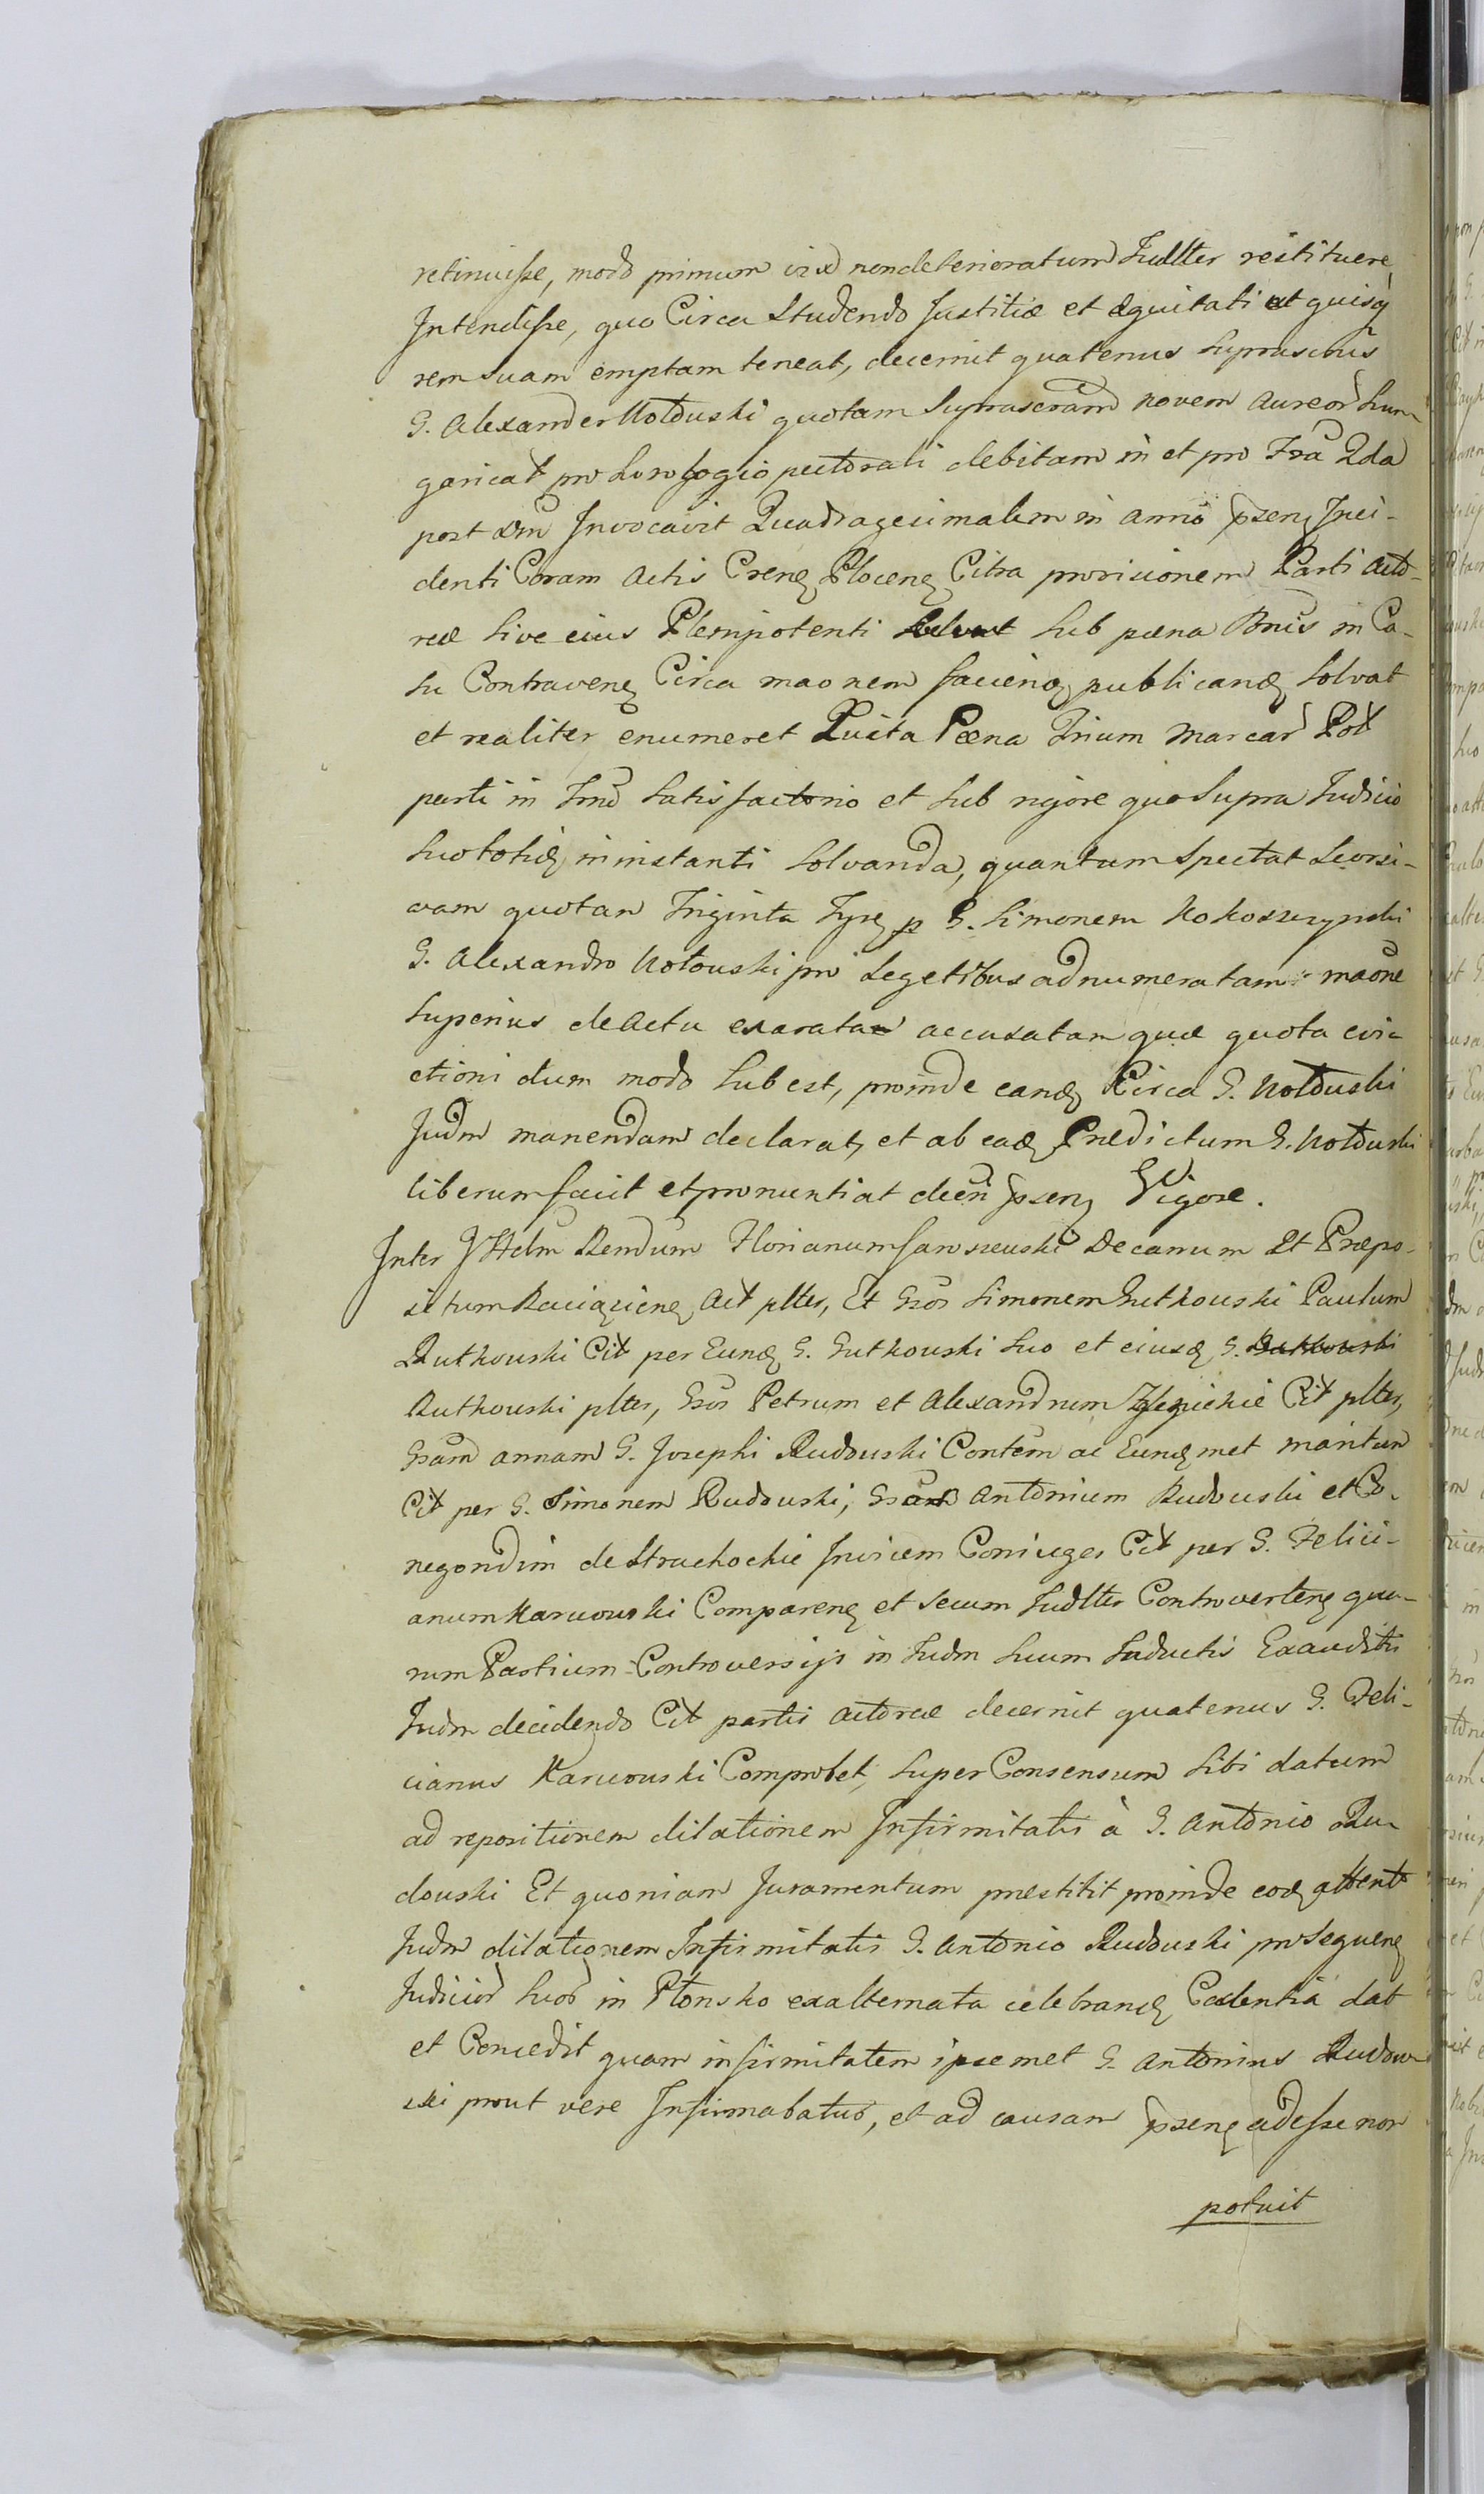 retinuisse, modo primum izd nondeterioratum Iudlter restituere,
Intendisse, quo Circa Studendo Justitiæ et æquitati ut quisq
rem suam emptam teneat, decernit quatenus suprascrus
G. Alexander Kołduski quotam suprascram novem aureor Hun-
garical pro horologio pectorali debitam in et pro Fra 2da
post Dm Invocavit Quadragesimalem in anno psenȝ Inci-
denti Coram Actis Crenȝ Płocenȝ Citra provisionem Parti Acto-
reæ sive eius Plenipotenti solvat sub pæna Bnis in Ca-
su Contravenȝ Circa maonem facienȝ publicanȝ solvat
et realiter enumeret Luita Pæna Trium Marcar Pol
parti in Tmo satisfactorio et sub rigore quo supra Iudicio
suo totiȝ in instanti solvanda, quantum spectat Seorsi-
vam quotam Triginta Tynȝ p G. Simonem Kokoszczynski
G. Alexandro Kołouski pro Legetibus adnumeratam maone
superius de Actu exaratas accusatam quæ quota evi-
ctioni dum modo subest, proinde eandȝ Circa G. Kołduski
Judm manendam declarat, et ab eadȝ Prædictum G. Kołduski
liberum facit et pronuntiat decri psenȝ Vigore.
Inter JHelm Rendum Florianum Jaroszeuski Decanum Et Præpo-
situm Raciązienȝ Act pltes, Et Gsos Simonem Gutkouski Paulum
Rutkouski Cit per Eundȝ G. Gutkouski suo et eiusdȝ G. Gutkouski
Rutkouski pltes, Gsos Petrum et Alexandrum Zglenickie Cit pltes,
Gsam Annam G. Josephi Rudouski Contem ac Eundȝ met maritum
Cit per G. Simonem Rudouski, Gsos Antonium Rudouski et Co-
negondim de Strachockie Invicem Coniuges Cit per G. Felici-
anum Karwouski Comparenȝ et secum Iudlter Controvertenȝ qua-
rum Partium Controversijs in Iudm suum Inductis Exauditis
Iudm decidendo Cit partis actoreæ decernit quatenus G. Feli-
cianus Karwouski Comprobet, super Consensum sibi datum
ad repositionem dilationem Infirmitatis à G. Antonio Ru-
douski Et quoniam Juramentum præstitit proinde eodȝ attento
Judm dilationem Infirmitatis G. Antonio Rudouski pro sequenȝ
Judicior suor in Płonsko exalternata celebrandȝ Cadentia dat
et Concedit quam infirmitatem ipsemet G. Antonius Rudow-
ski prout vere Infirmabatur, et ad causam psenȝ adesse non
potuit